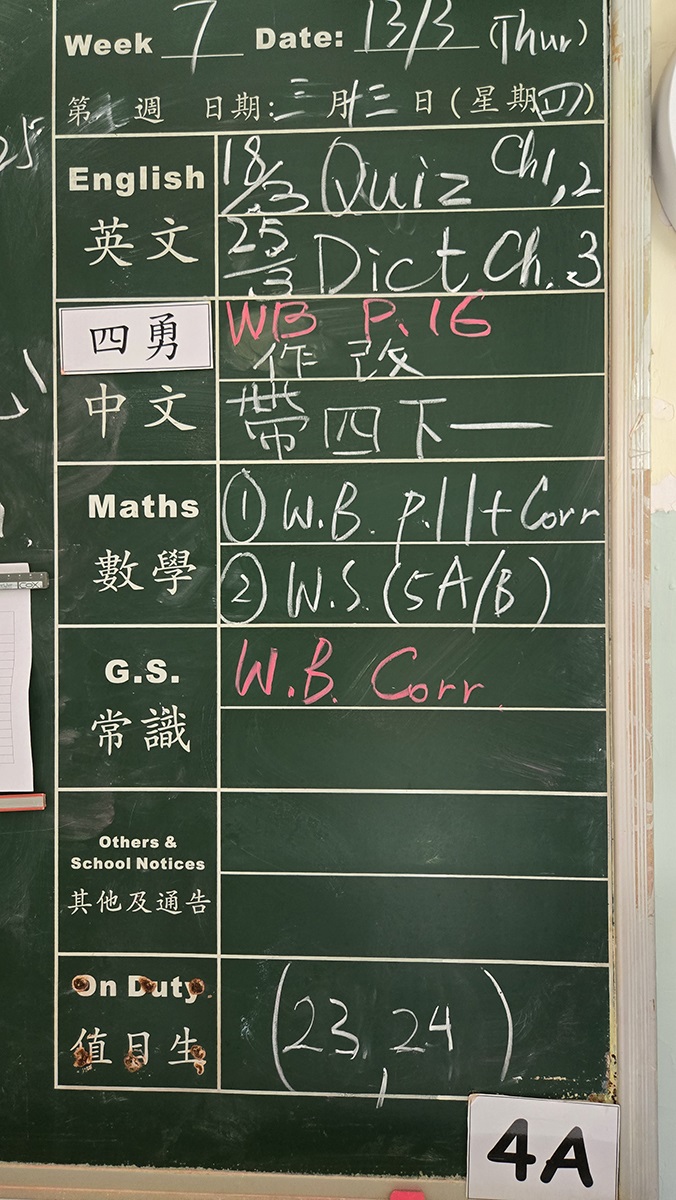 Week 7 Date: 13/3 (Thur)
第 週 日期: 三 月 十三 日 (星期四)
English
英文
18/3 Quiz Ch1,2
25/3 Dict Ch.3
四勇
中文
WB P.16
作改
帶四下一
Maths
數學
① W.B. p.11+Corr
② W.S. (5A/B)
G.S.
常識
W.B. Corr
Others &
School Notices
其他及通告
On Duty
值日生
(23, 24)
4A